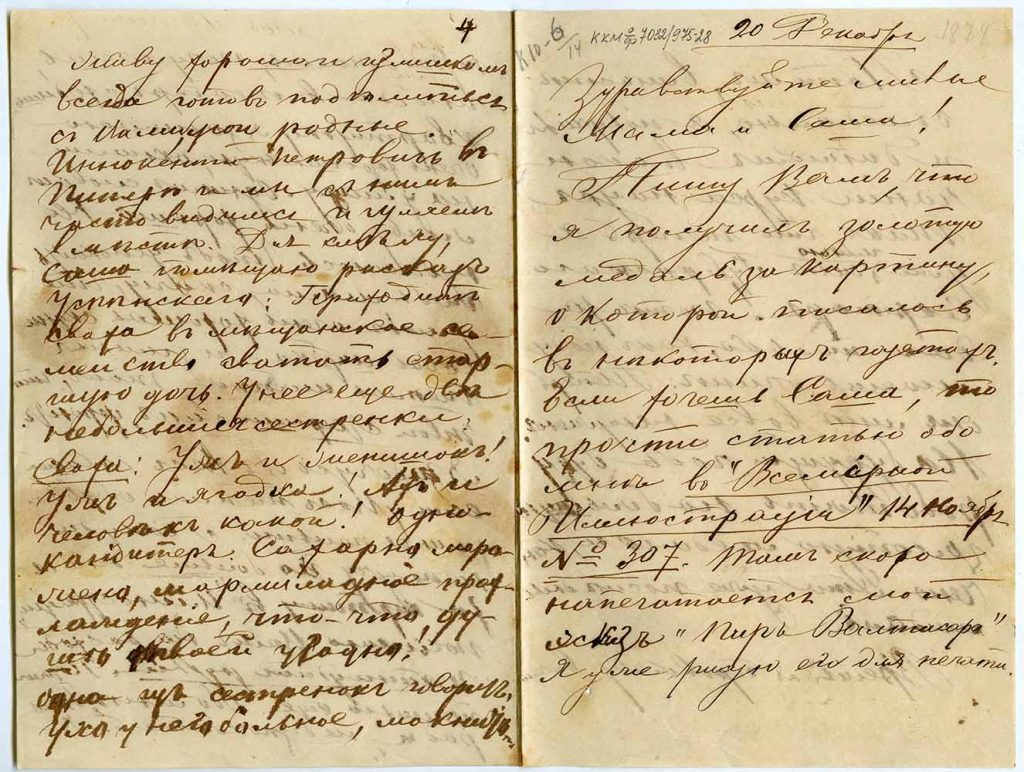 4
Живу хорошо и
всегда готовъ поделиться
съ Мамирой родные.
Иннокентий Петровичъ въ
Питере и мы съ нимъ
часто видимся и гуляемъ
вместе. Для смеху,
Саша помещаю рассказъ
Успенскаго: Приходитъ
сваха въ мещанское се-
мейство сватать стар-
шую дочь. У нее еще две
небольшия сестренки.
Сваха: Ужъ и женишокъ!
Ужъ и ягодка! Ахъ и
человекъ какой! Одни-
кандитеръ. Сахарно, моро-
жено, мармиладное прох-
лаждение, что-что, ду-
ше твоей угодно!
Одна изъ сестренокъ говоритъ:
ухо у него больное,
К10-6/14 ККМ оф 7092/975-28
20 Декабрь
Здравствуйте милые
Мама и Саша!
Пишу Вамъ что
я получилъ золотую
медаль за картину,
о которой писалось
въ некоторыхъ газетахъ.
Если хочешь Саша, то
прочти статью обо
мне въ "Всемирной
Иллюстраціи" 14 Ноябрь
№ 307. Тамъ скоро
напечатается мой
эскизъ "Пиръ Валтасара"
Я уже рисую его для печати.